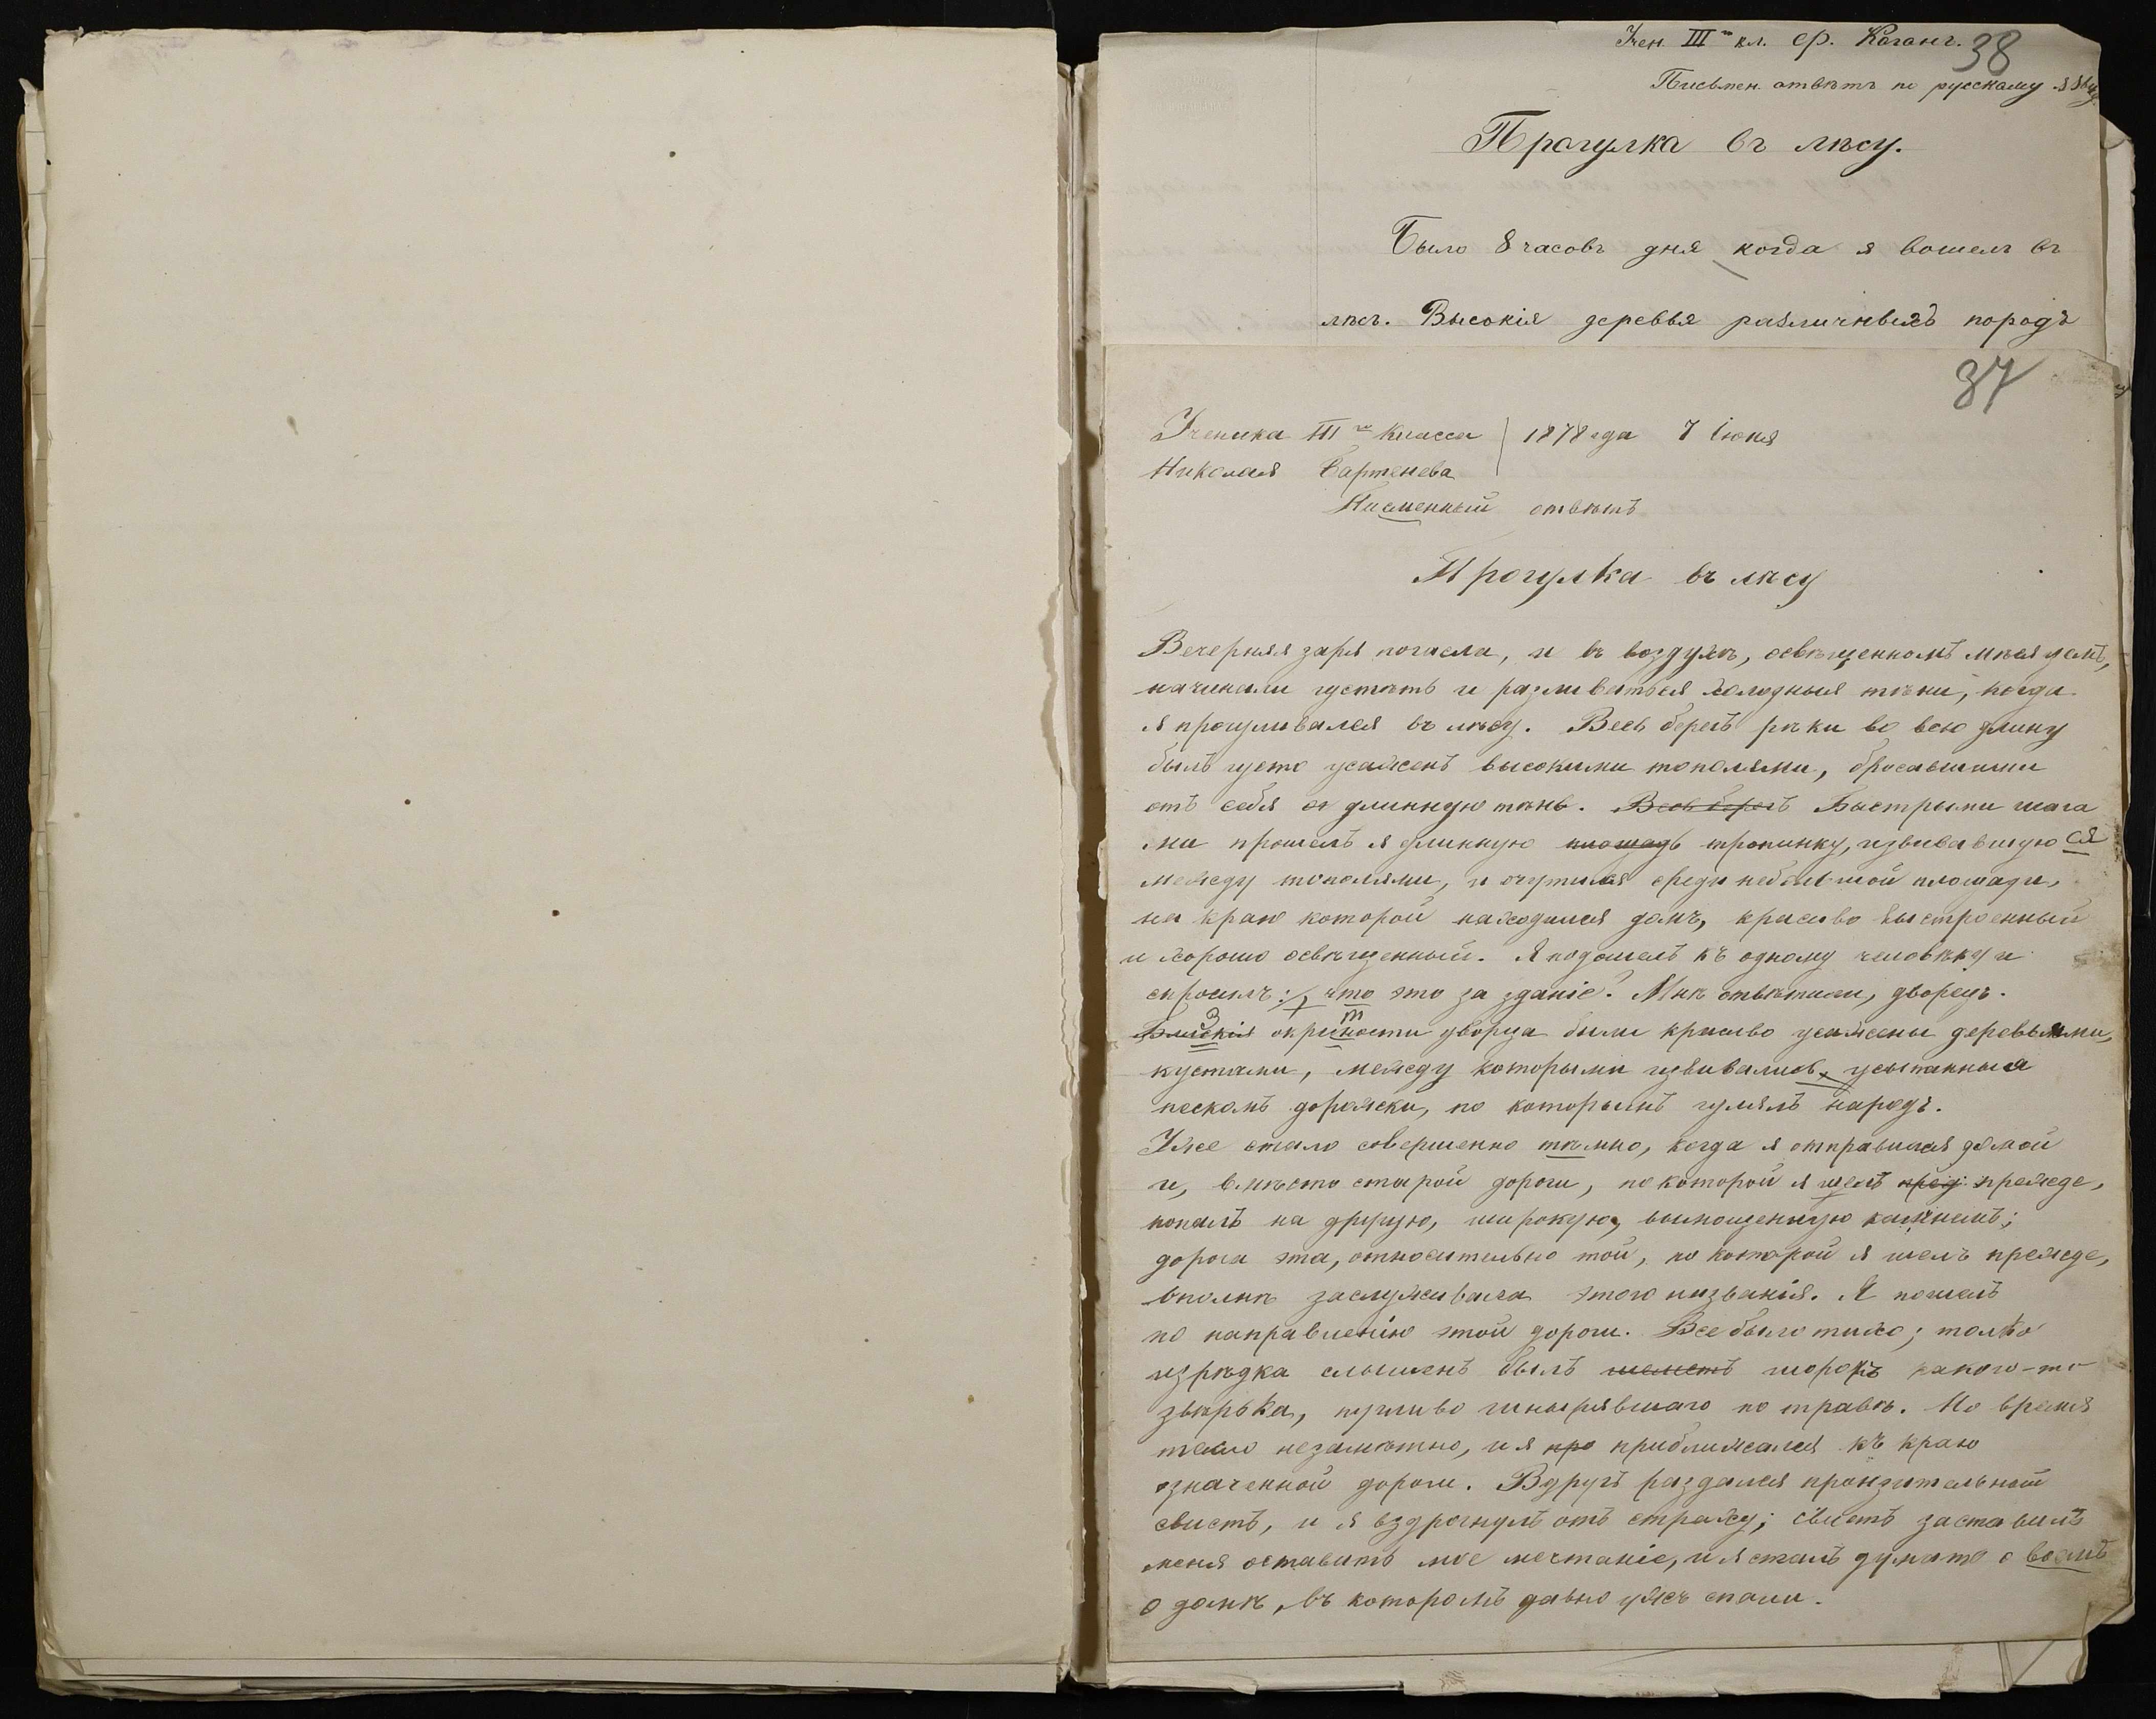 Учен. III го кл. Ср. Каганъ.
38
Письмен. отвѣтъ по русскому языку.
Прогулка въ лѣсу.
Было 8 часовъ дня когда я вошелъ въ
лѣсъ. Высокія деревья различныхъ породъ
37
Ученика III го класса 1878 года 7 Іюня
Николая Бартенева
Писменный отвѣтъ
Прогулка въ лѣсу
Вечерняя заря погасла, и въ воздухѣ, освѣщенномъ мѣсяцемъ,
начинали густѣть и разливаться холодныя тѣни, когда
я прогуливался въ лѣсу. Весь берегъ рѣки во всю длину
былъ густо усаженъ высокими тополями, бросавшими
отъ себя длинную тѣнь. Весь берегъ Быстрыми шага
ми прошелъ я длинную площадь тропинку, извивавшуюся
между тополями, и очутился среди небольшой площади,
на краю которой находился домъ, красиво выстроенный
и хорошо освѣщенный. Я подошелъ къ одному человѣку и
спросилъ:, что это за зданіе? Мнѣ отвѣтили, дворецъ.
Близкія окрисности дворца были красиво усажены деревьями,
кустами, между которыми извивались, усыпанныя
пескомъ дорожки, по которымъ гулялъ народъ.
Уже стало совершенно тѣмно, когда я отправился домой
и, вмѣсто старой дороги, по которой я шелъ пред. прежде,
попалъ на другую, широкую, вымощенную камнемъ;
дорога эта, относительно той, по которой я шелъ прежде,
вполнѣ заслуживала этого названія. Я пошелъ
по направленію этой дороги. Все было тихо; только
изрѣдка слышенъ былъ шелестъ шорохъ какого-то
звѣрька, пугливо шнырявшаго по травѣ. Но время
текло незамѣтно, и я про приближался къ краю
означенной дороги. Вдругъ раздался пронзительный
свистъ, и я вздрогнулъ отъ страху; свистъ заставилъ
меня оставить мое мечтаніе, и я сталъ думать о
о домѣ, въ которомъ давно ужъ спали.